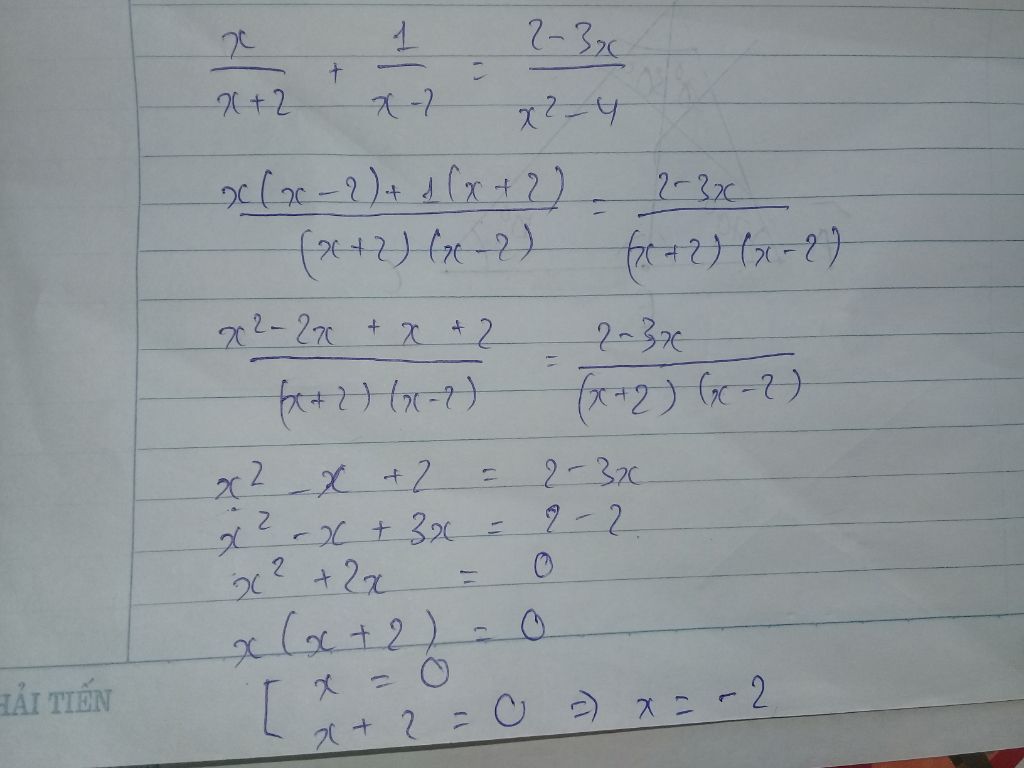 x/(x+2) + 1/(x-2) = (2-3x)/(x²-4)
(x(x-2)+1(x+2))/((x+2)(x-2)) = (2-3x)/((x+2)(x-2))
(x²-2x+x+2)/((x+2)(x-2)) = (2-3x)/((x+2)(x-2))
x² - x + 2 = 2-3x
x² - x + 3x = 2-2
x² + 2x = 0
x(x+2) = 0
[ x = 0
x+2 = 0 => x = -2
HẢI TIẾN